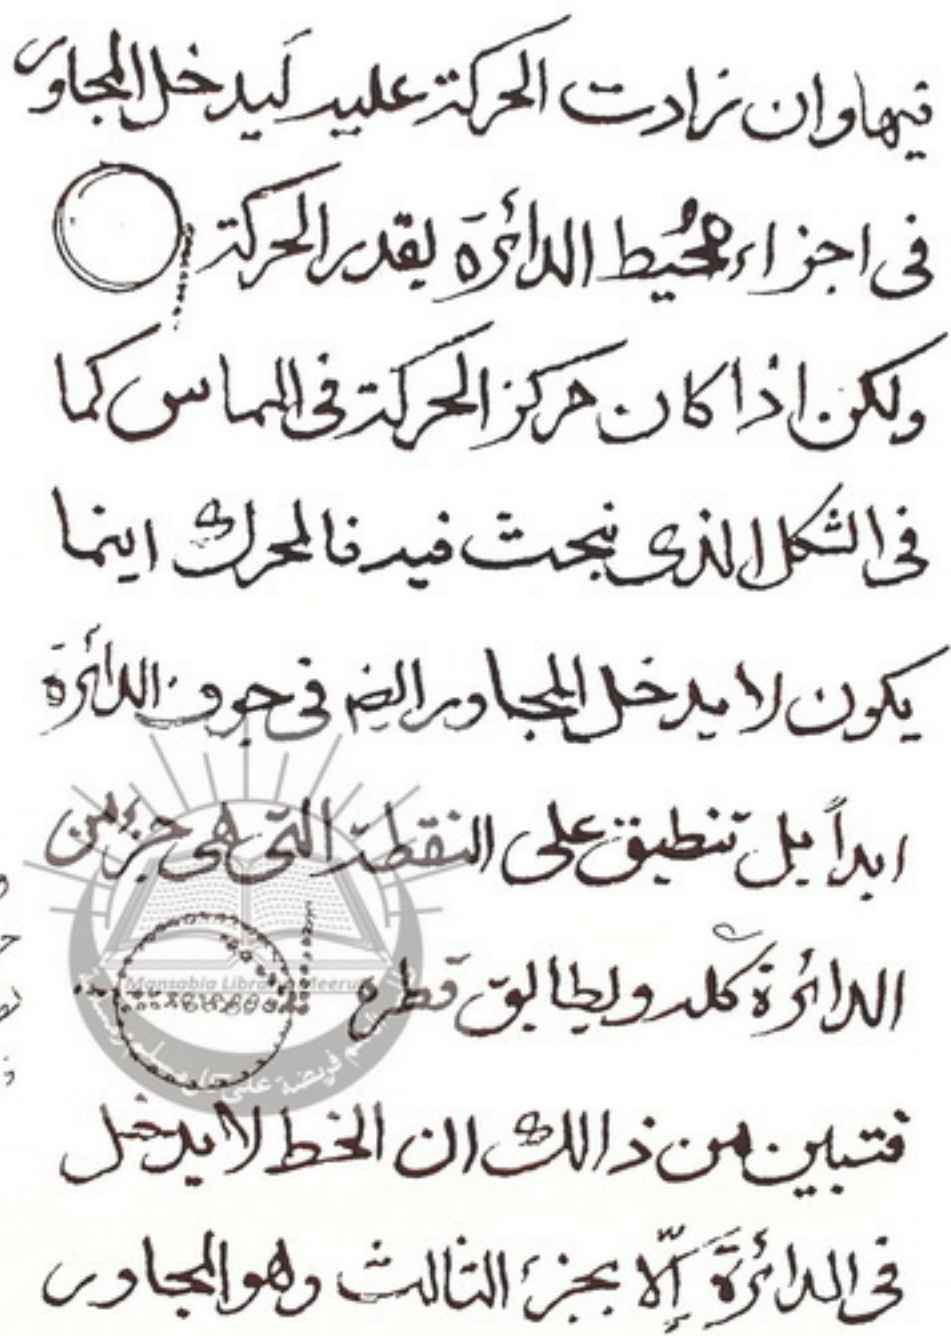 فيها وان زادت الحركة عليه ليدخل المجاور
فى اجزاء محُيط الدائرة بقدر الحركة
ولكن اذا كان مركز الحركة فى المماس كما
فى الشكل الذى نبحث فيه فالمحرك اينما
يكون لا يدخل المجاور الضم فى جوف الدائرة
ابداً بل تنطبق على النقطة التى هى جزء من
الدائرة كله ولطالبق قطره
Mansabia Library Meerut
فريضة على
فتبين من ذالك ان الخط لا يدخل
فى الدائرة إلّا بجزء الثالث وهو المجاور